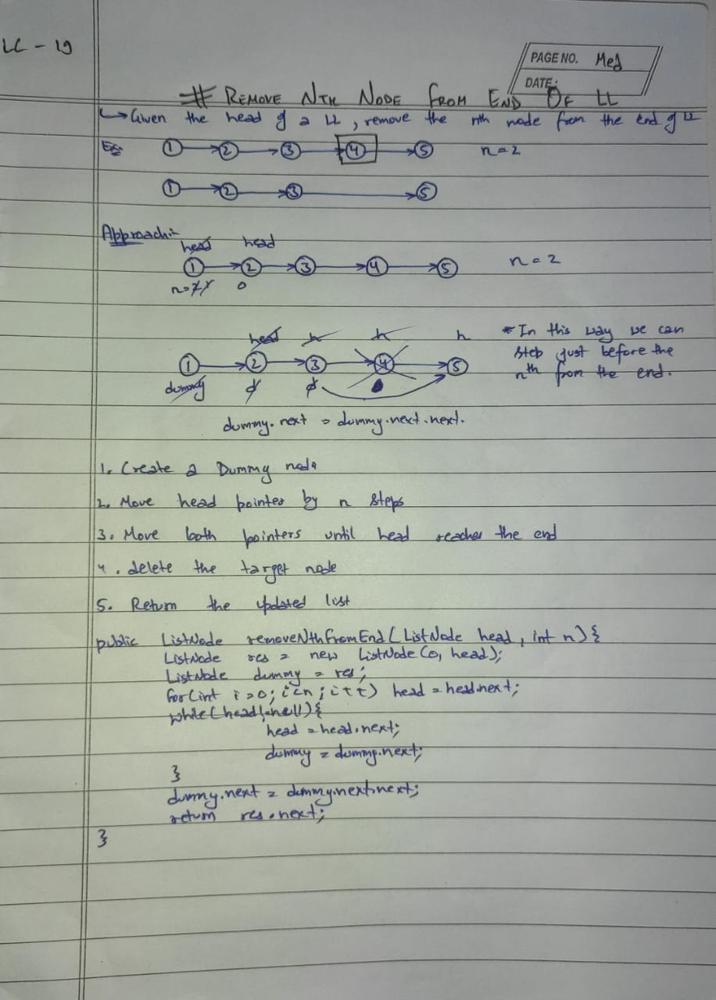 LC - 19
PAGE NO. Med
DATE:
# REMOVE NTH NODE FROM END OF LL
↳ Given the head of a LL, remove the nth node from the end of LL
Ex: 1 → 2 → 3 → 4 → 5 n = 2
1 → 2 → 3 → 5
Approach:-
head head
1 → 2 → 3 → 4 → 5 n = 2
0
head h h h
1 → 2 → 3 → 4 → 5
dummy d d
* In this way we can
stop just before the
nth from the end.
dummy.next = dummy.next.next.
1. Create a Dummy node
2. Move head pointer by n steps
3. Move both pointers until head reaches the end
4. delete the target node
5. Return the updated list
public ListNode removeNthFromEnd(ListNode head, int n){
ListNode res = new ListNode(0, head);
ListNode dummy = res;
for(int i=0; i<n; i++) head = head.next;
while(head!=null){
head = head.next;
dummy = dummy.next;
}
dummy.next = dummy.next.next;
return res.next;
}